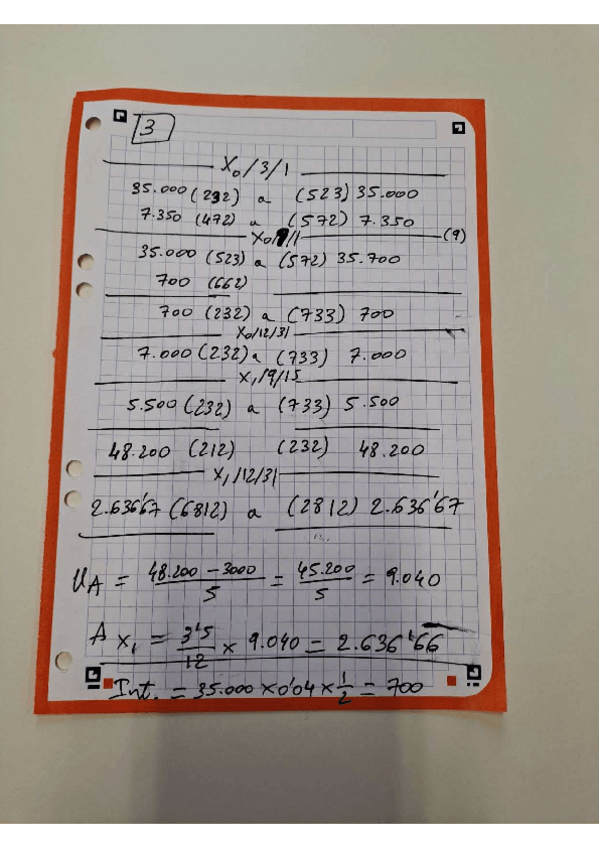 3
X₀/3/1
35.000 (232) a (523) 35.000
7.350 (472) a (572) 7.350
X₀/9/1 (9)
35.000 (523) a (572) 35.700
700 (662)
700 (232) a (733) 700
X₀/12/31
7.000 (232) a (733) 7.000
X₁/9/15
5.500 (232) a (733) 5.500
48.200 (212) (232) 48.200
X₁/12/31
2.636'67 (6812) a (2812) 2.636'67
UA = 48.200 - 3000 / 5 = 45.200 / 5 = 9.040
A X₁ = 3'5 / 12 × 9.040 = 2.636'66
Int. = 35.000 × 0'04 × 1/2 = 700